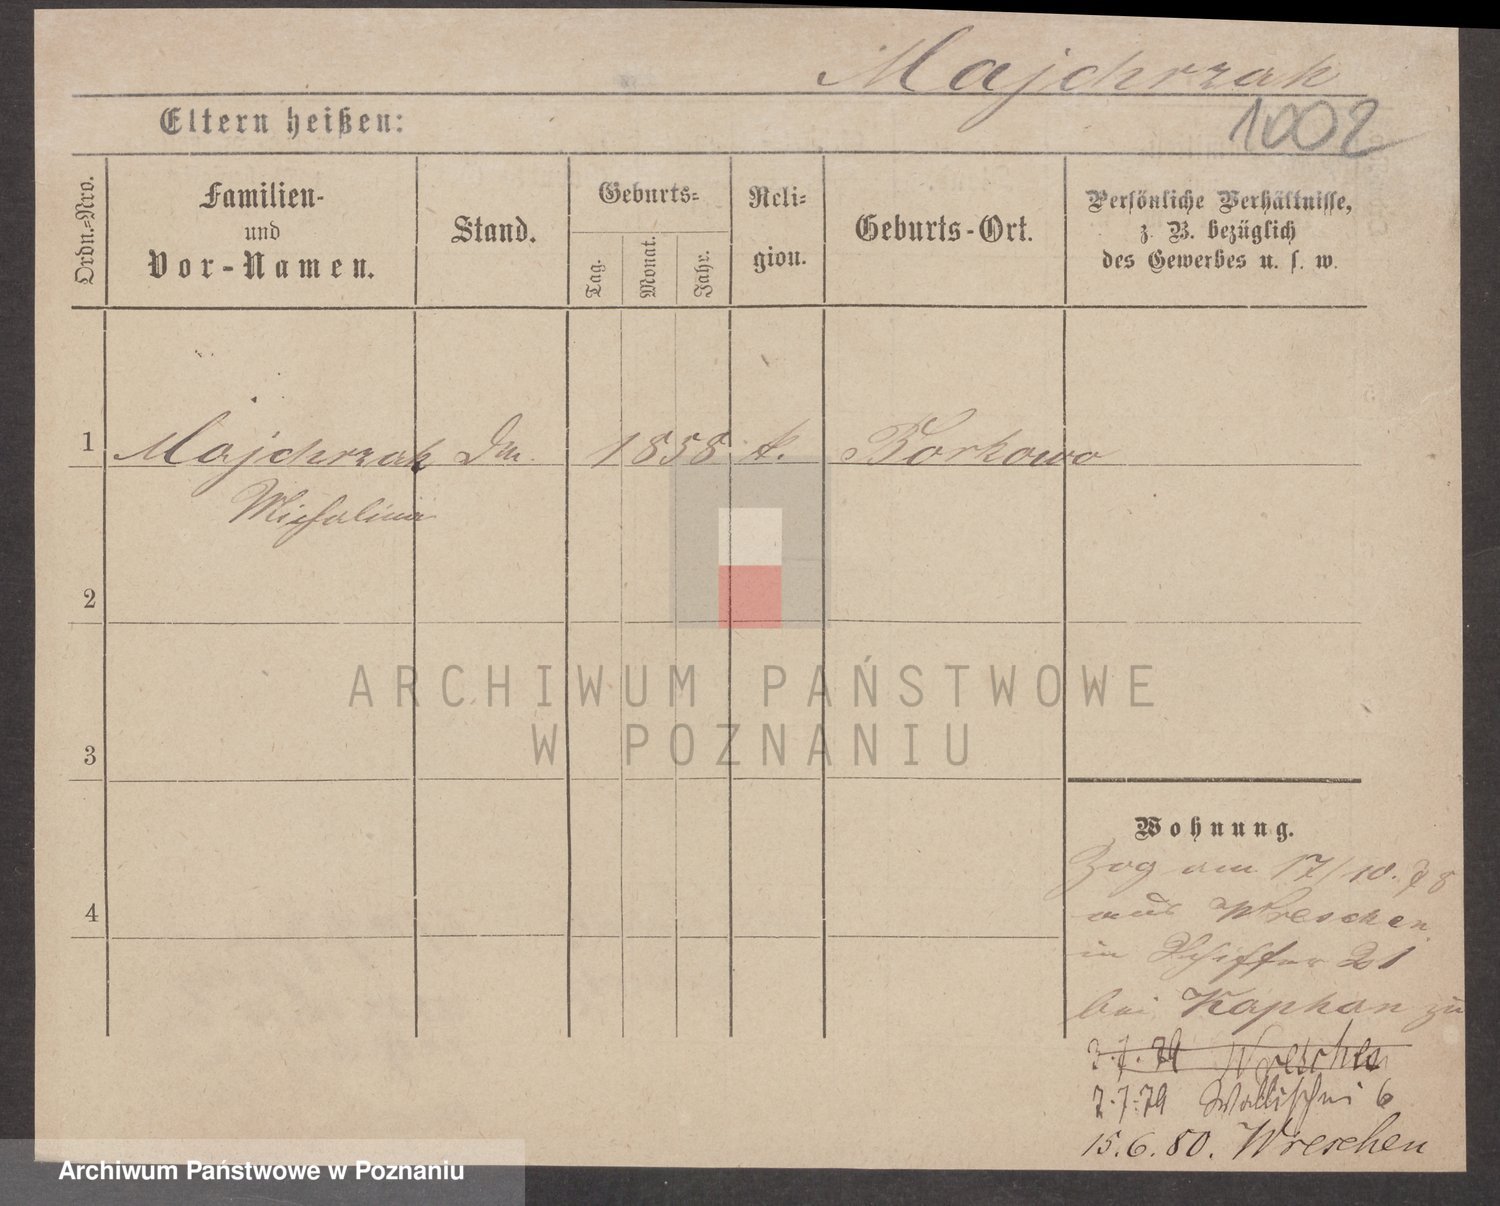 Majchrzak
Eltern heißen:
1002
Ordn.=Nro.
Familien-
und
Vor-Namen.
Stand.
Geburts=
Tag.
Monat.
Jahr.
Reli=
gion.
Geburts-Ort.
Persönliche Verhältnisse,
z. B. bezüglich
des Gewerbes u. s. w.
1 Majchrzak 1858 k. Borkowo
Michalina
2
3
4
ARCHIWUM PAŃSTWOWE
W POZNANIU
Wohnung.
Zog am 17/10. 78
aus Wreschen
in 21
bei Kaphan zu
3.7.79 Wreschen
7.7.79 Wallischei 6
15.6.80. Wreschen
Archiwum Państwowe w Poznaniu